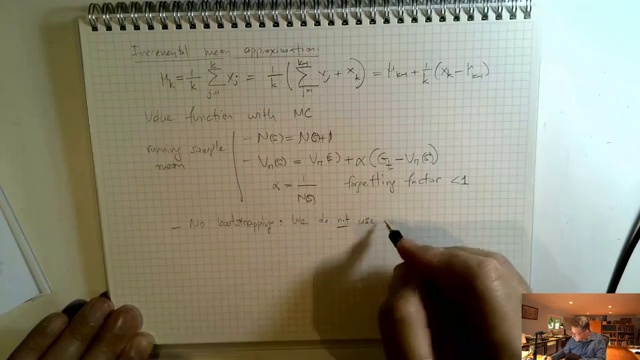 Incremental mean approximation:
μ_k = 1/k Σ_{j=1}^{k} x_j = 1/k ( Σ_{j=1}^{k-1} x_j + x_k ) = μ_{k-1} + 1/k (x_k - μ_{k-1})
Value function with MC
running sample mean
- N(s) = N(s)+1
- V_π(s) = V_π(s) + α (G_t - V_π(s))
α = 1/N(s) forgetting factor <1
- No bootstrapping: We do not use